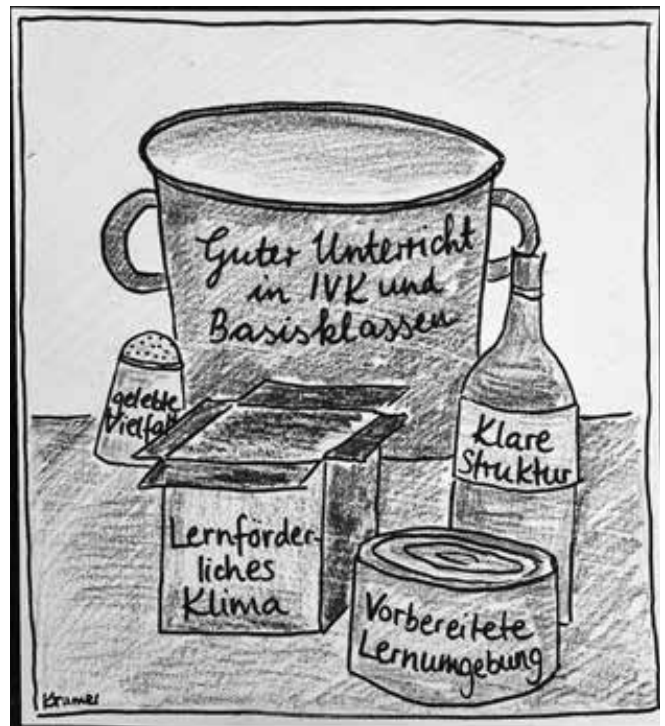 Guter Unterricht
in IVK und
Basisklassen
gelebte
Vielfalt
Klare
Struktur
Lernförder-
liches
Klima
Vorbereitete
Lernumgebung